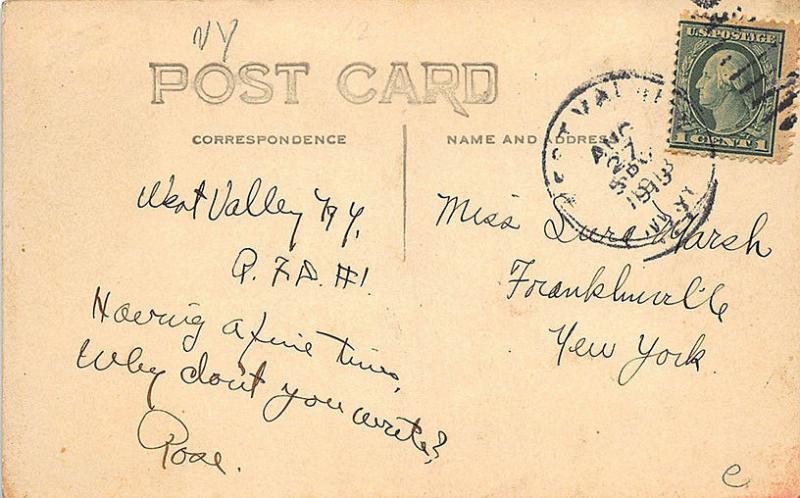 NY
POST CARD
CORRESPONDENCE
NAME AND ADDRESS
U.S. POSTAGE
1 CENT 1
AUG
27
5 PM
1913
West Valley N.Y.
R.F.D. #1.
Having a fine time,
Why don't you write?
Rose.
Miss Lura Marsh
Franklinville
New York.
e